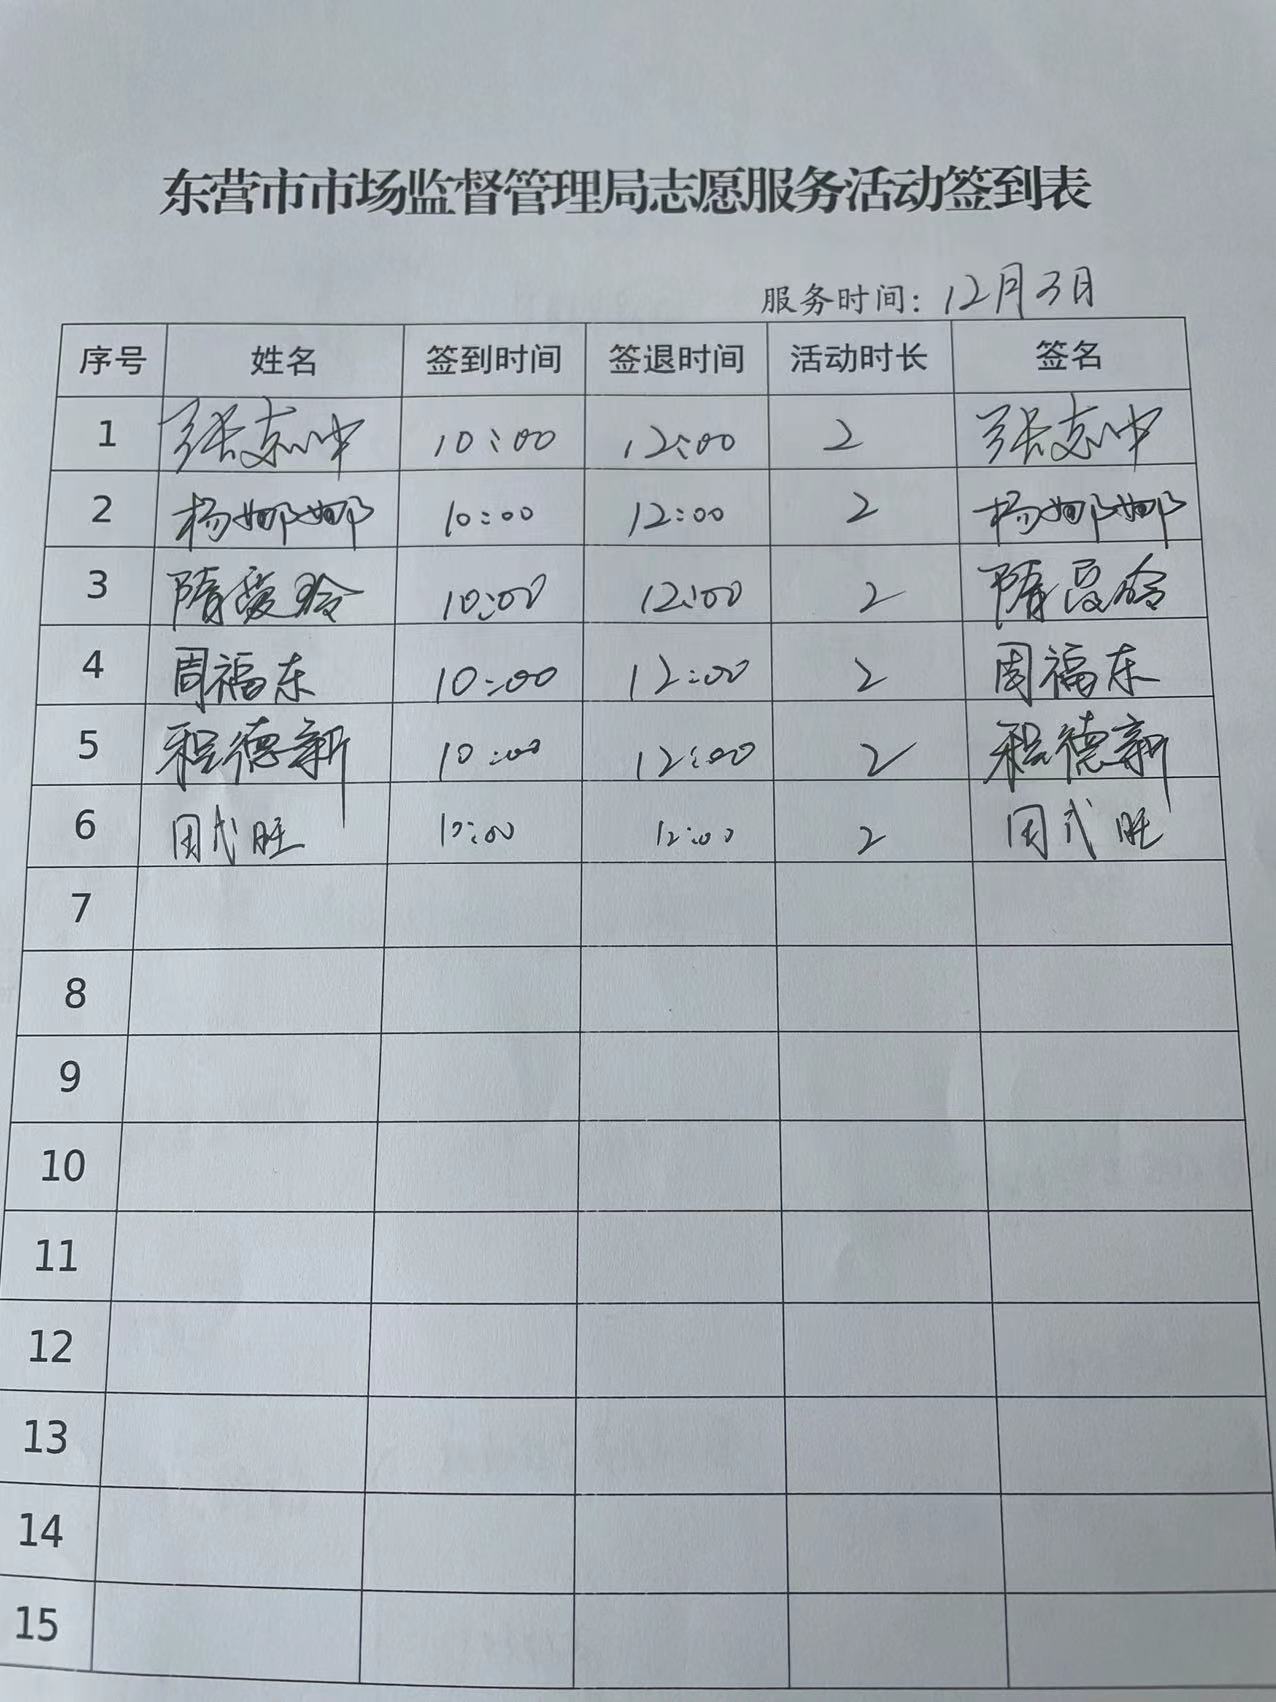 东营市市场监督管理局志愿服务活动签到表
服务时间：12月3日
序号 姓名 签到时间 签退时间 活动时长 签名
1 张志冲 10:00 12:00 2 张志冲
2 杨娜娜 10:00 12:00 2 杨娜娜
3 隋爱玲 10:00 12:00 2 隋爱玲
4 周福东 10:00 12:00 2 周福东
5 程德新 10:00 12:00 2 程德新
6 10:00 12:00 2
7
8
9
10
11
12
13
14
15